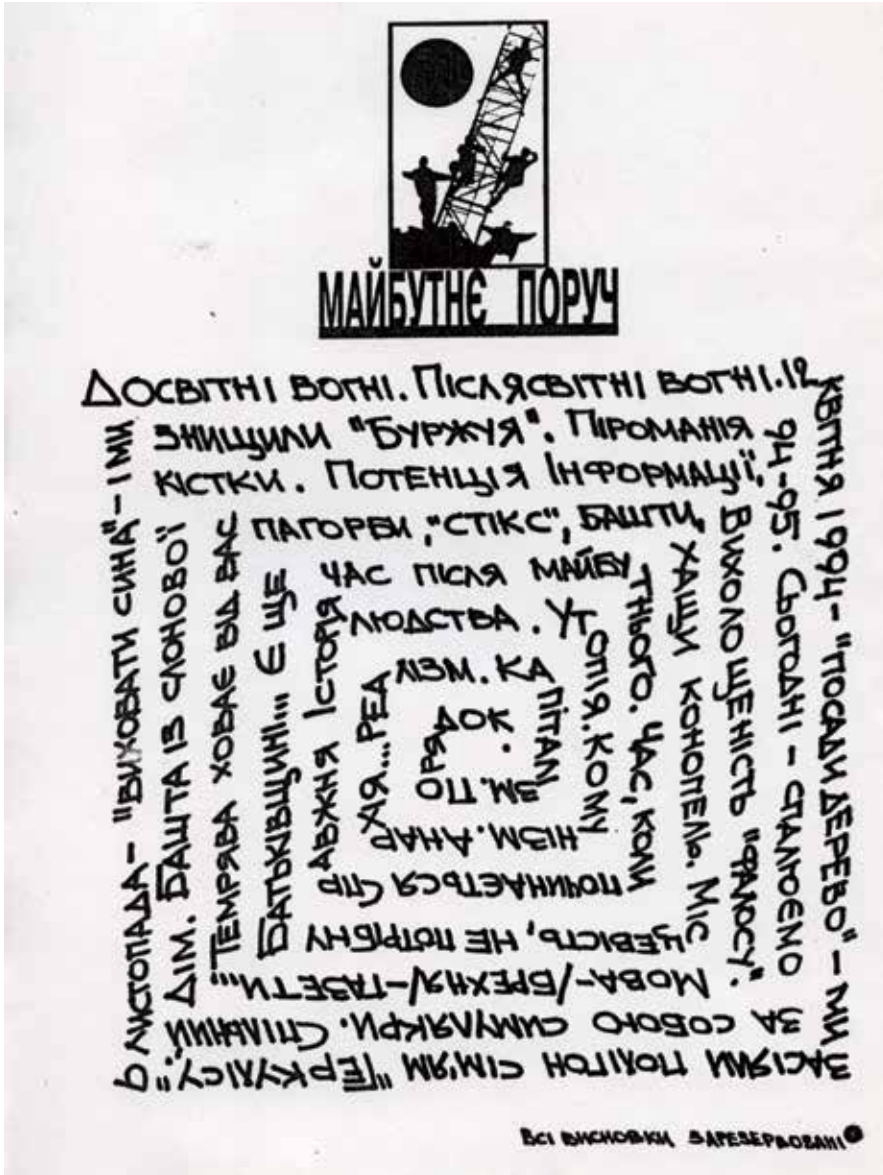 МАЙБУТНЄ ПОРУЧ
Досвітні вогні. Післясвітні вогні. 12
квітня 1994 – "посади дерево" – ми
засіяли полігон сім'ям "Геркулісу",
9 листопада – "виховати сина" – і ми
знищили "Буржуя". Піроманія
94-95. Сьогодні – спалюємо
за собою симулякри. Спільний
дім. Башта із слонової
кістки. Потенція Інформації,
Вихолощеність "фалосу".
Мова-/брехня/-газети...
Темрява ховає від вас
пагорби, "Стікс", башти,
хащи конопель. Міс
цевість, не потрібну
Батьківщині... Є ще
час після майбу
тнього. Час, коли
починається спр
авжня Історія
людства. Ут
опія. Кому
нізм. Анар
хія... Реа
лізм. Ка
піталі
зм. По
ря
док.
Всі висновки зарезервовані